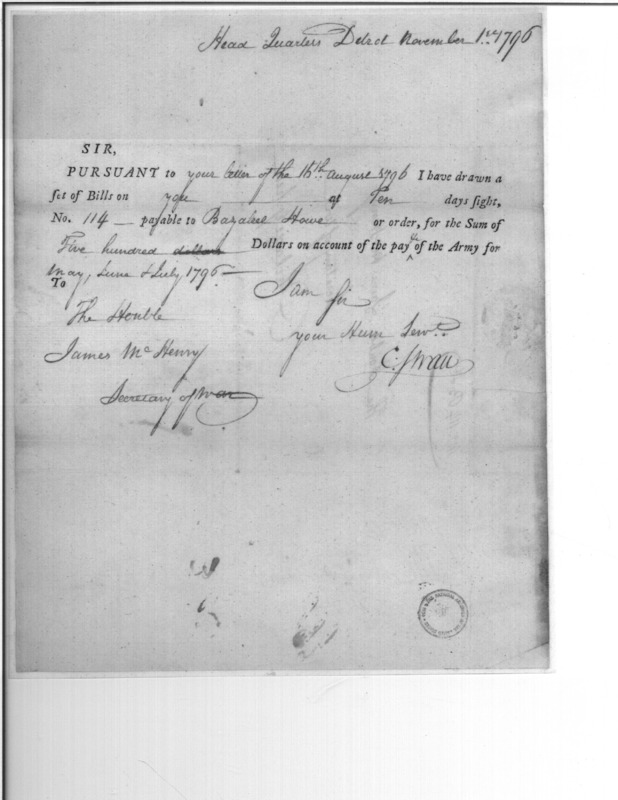 Head Quarters Detrot November 1st 1796
SIR,
PURSUANT to your letter of the 16th August 1796 I have drawn a
set of Bills on you at Ten days sight,
No. 114 — payable to Bazaleel Howe or order, for the Sum of
Five hundred dollars Dollars on account of the pay &c of the Army for
May, June & July 1796 —
To
I am Sir
The Honble
your Hum Servt
James McHenry
C: Swan
Secretary of War